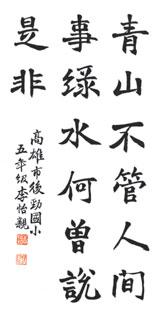 青山不管人間
事綠水何曾說
是非
高雄市後勁國小
五年級李怡親